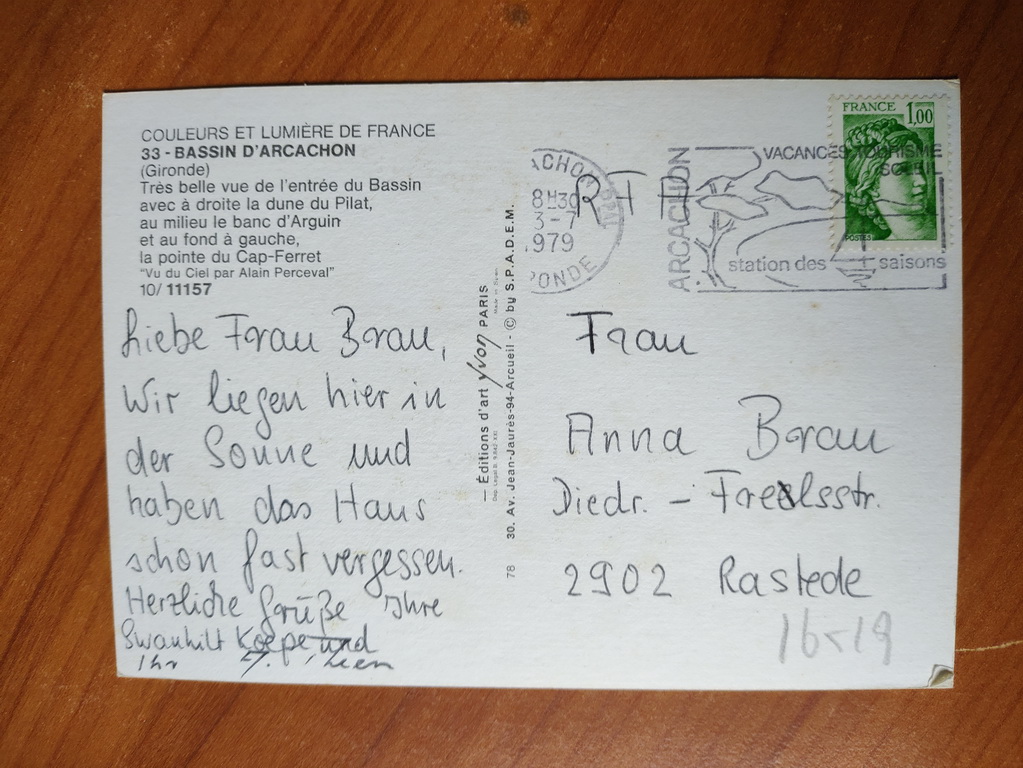 COULEURS ET LUMIÈRE DE FRANCE
33 - BASSIN D'ARCACHON
(Gironde)
Très belle vue de l'entrée du Bassin
avec à droite la dune du Pilat,
au milieu le banc d'Arguin
et au fond à gauche,
la pointe du Cap-Ferret
"Vu du Ciel par Alain Perceval"
10/ 11157
Liebe Frau Brau,
Wir liegen hier in
der Sonne und
haben das Haus
schon fast vergessen.
Herzliche Grüße Ihre
Swanhilt und
Ihr
— Éditions d'art yvon PARIS
30. Av. Jean-Jaurès-94-Arcueil - © by S.P.A.D.E.M.
78
FRANCE 1,00
POSTES
ARCACHON
VACANCES TOURISME
SOLEIL
station des saisons
8H30
3-7
1979
RFA
Frau
Anna Brau
Diedr. - Freelsstr.
2902 Rastede
16x19